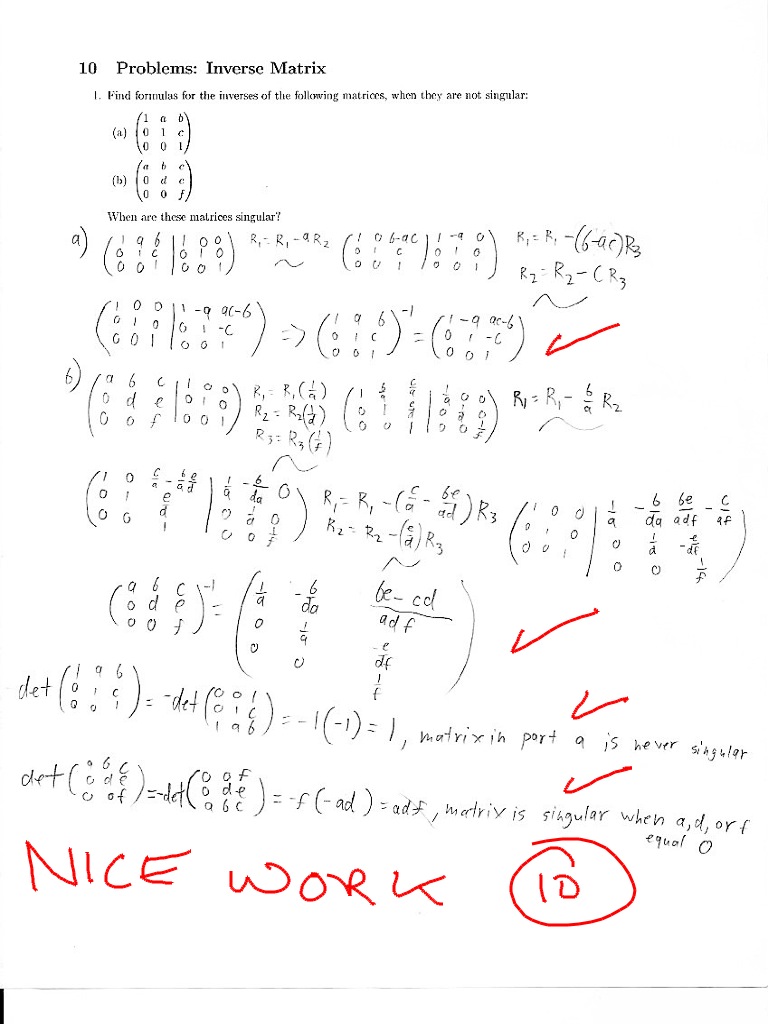 10 Problems: Inverse Matrix
1. Find formulas for the inverses of the following matrices, when they are not singular:
(a) (1 a b
0 1 c
0 0 1)
(b) (a b c
0 d e
0 0 f)
When are these matrices singular?
a) (1 a b | 1 0 0
0 1 c | 0 1 0
0 0 1 | 0 0 1) R₁=R₁-aR₂ ~ (1 0 b-ac | 1 -a 0
0 1 c | 0 1 0
0 0 1 | 0 0 1) R₁=R₁-(b-ac)R₃
R₂=R₂-CR₃ ~
(1 0 0 | 1 -a ac-b
0 1 0 | 0 1 -c
0 0 1 | 0 0 1) => (1 a b
0 1 c
0 0 1)⁻¹ = (1 -a ac-b
0 1 -c
0 0 1) ✓
b) (a b c | 1 0 0
0 d e | 0 1 0
0 0 f | 0 0 1) R₁=R₁(1/a)
R₂=R₂(1/d)
R₃=R₃(1/f) ~ (1 b/a c/a | 1/a 0 0
0 1 e/d | 0 1/d 0
0 0 1 | 0 0 1/f) R₁=R₁-b/a R₂ ~
(1 0 c/a-be/ad | 1/a -b/da 0
0 1 e/d | 0 1/d 0
0 0 1 | 0 0 1/f) R₁=R₁-(c/a-be/ad)R₃
R₂=R₂-(e/d)R₃ ~ (1 0 0 | 1/a -b/da be/adf-c/af
0 1 0 | 0 1/d -e/df
0 0 1 | 0 0 1/f)
(a b c
0 d e
0 0 f)⁻¹ = (1/a -b/da be-cd/adf
0 1/d -e/df
0 0 1/f) ✓
det(1 a b
0 1 c
0 0 1) = -det(0 0 1
0 1 c
1 a b) = -1(-1) = 1, matrix in part a is never singular ✓
det(a b c
0 d e
0 0 f) = -det(0 0 f
0 d e
a b c) = -f(-ad) = adf, matrix is singular when a, d, or f
equal 0 ✓
NICE WORK 10